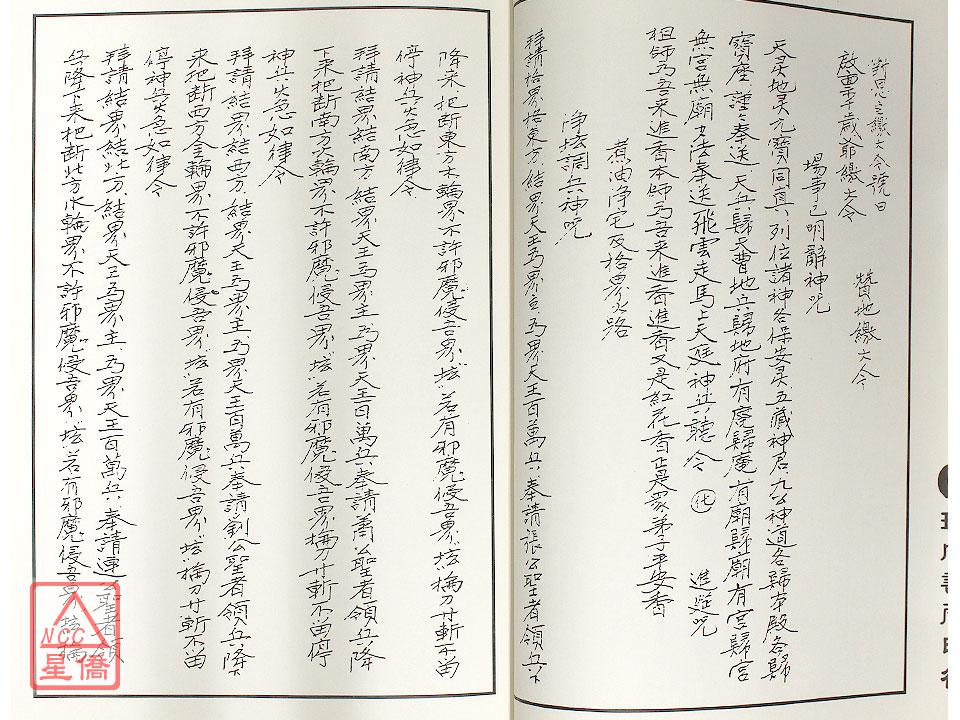 對思之繳大令號曰
啟稟千歲爺繳大令 替地繳大令
場事已明辭神咒
天靈地靈九寶同真列位諸神各保安靈五藏神君九公神道各歸本殿各歸
寶座謹謹奉送天兵歸天曹地兵歸地府有庵歸庵有廟歸廟有宮歸宮
無宮無廟吾法奉送飛雲走馬上天庭神兵聽令 化 進香咒
祖師為吾來進香本師為吾來進香進香又是紅花香正是眾弟子平安香
煮油淨宅及格界火路
淨坛調兵神咒
拜請結界結東方結界天王為界主為界天王百萬兵奉請張公聖者領兵下
降來把斷東方木輪界不許邪魔侵吾界坛若有邪魔侵吾界坛掄刀寸斬不留
停神兵火急如律令
拜請結界結南方結界天王為界主為界天王百萬兵奉請蕭公聖者領兵降
下來把斷南方火輪界不許邪魔侵吾界坛若有邪魔侵吾界掄刀寸斬不留停
神兵火急如律令
拜請結界結西方結界天王為界主為界天王百萬兵奉請劉公聖者領兵降下
來把斷西方金輪界不許邪魔侵吾界坛若有邪魔侵吾界坛掄刀寸斬不留
停神兵火急如律令
拜請結界結北方結界天王為界主為界天王百萬兵奉請連公聖者領
兵降下來把斷北方水輪界不許邪魔侵吾界坛若有邪魔侵吾界坛掄
NCC
星僑